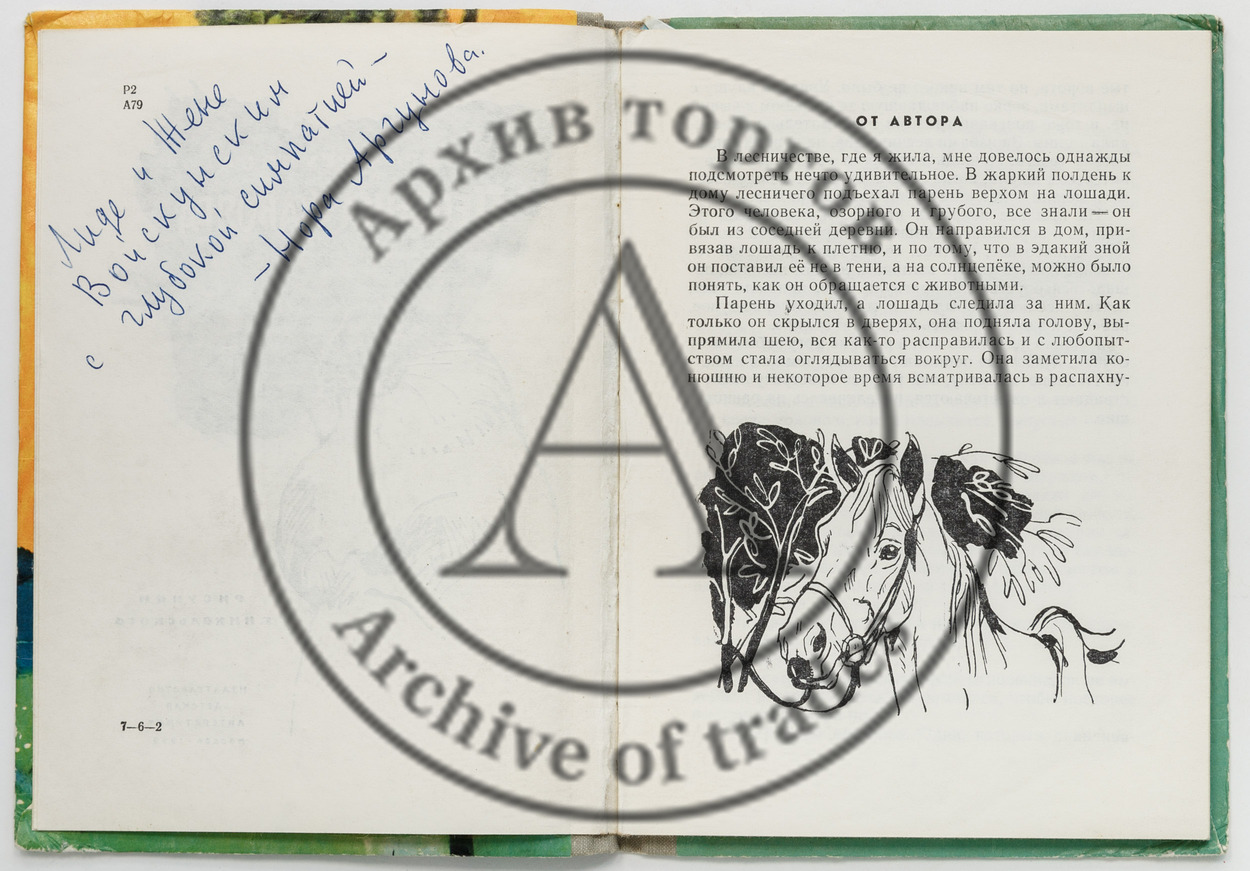 Р2
А79
Лиде и Жене
Войскунским
с глубокой симпатией –
– Нора Аргунова.
7—6—2
ОТ АВТОРА
В лесничестве, где я жила, мне довелось однажды
подсмотреть нечто удивительное. В жаркий полдень к
дому лесничего подъехал парень верхом на лошади.
Этого человека, озорного и грубого, все знали — он
был из соседней деревни. Он направился в дом, при-
вязав лошадь к плетню, и по тому, что в эдакий зной
он поставил её не в тени, а на солнцепёке, можно было
понять, как он обращается с животными.
Парень уходил, а лошадь следила за ним. Как
только он скрылся в дверях, она подняла голову, вы-
прямила шею, вся как-то расправилась и с любопыт-
ством стала оглядываться вокруг. Она заметила ко-
нюшню и некоторое время всматривалась в распахну-
Архив торговли
A
Archive of trade